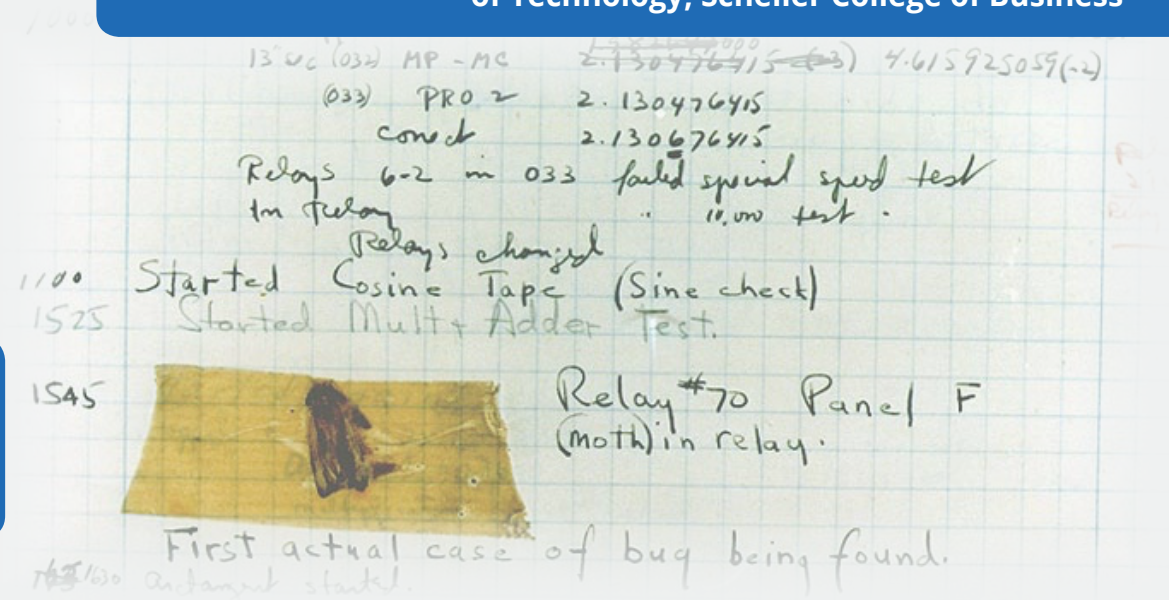 of Technology, Scheller College of Business
13" uc (032) MP - MC 2.130476415 (-3) 4.615925059(-2)
(033) PRO 2 2.130476415
conect 2.130676415
Relays 6-2 in 033 failed special speed test
In Relay " 10,000 test .
Relays changed
1100 Started Cosine Tape (Sine check)
1525 Started Mult + Adder Test.
1545 Relay #70 Panel F
(moth) in relay.
First actual case of bug being found.
1630 Antangent started.